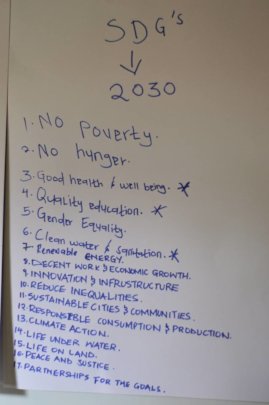 SDG's
2030
1. No poverty.
2. No hunger.
3. Good health & well being. *
4. Quality education. *
5. Gender Equality.
6. Clean water & sanitation. *
7. Renewable ENERGY.
8. DECENT WORK & ECONOMIC GROWTH.
9. INNOVATION & INFRASTRUCTURE
10. REDUCE INEQUALITIES.
11. SUSTAINABLE CITIES & COMMUNITIES.
12. RESPONSIBLE CONSUMPTION & PRODUCTION.
13. CLIMATE ACTION.
14. LIFE UNDER WATER.
15. LIFE ON LAND.
16. PEACE AND JUSTICE.
17. PARTNERSHIPS FOR THE GOALS.